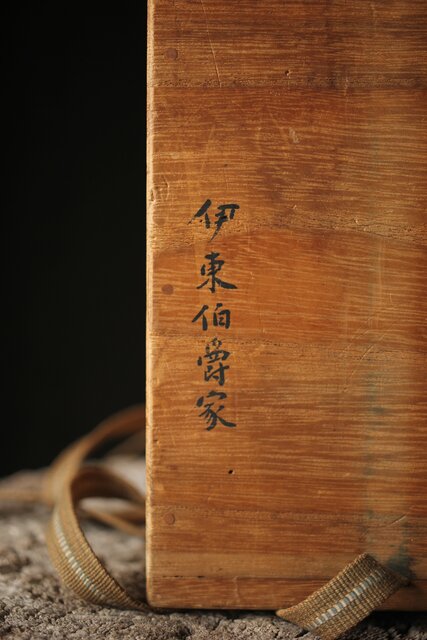 伊東伯爵家